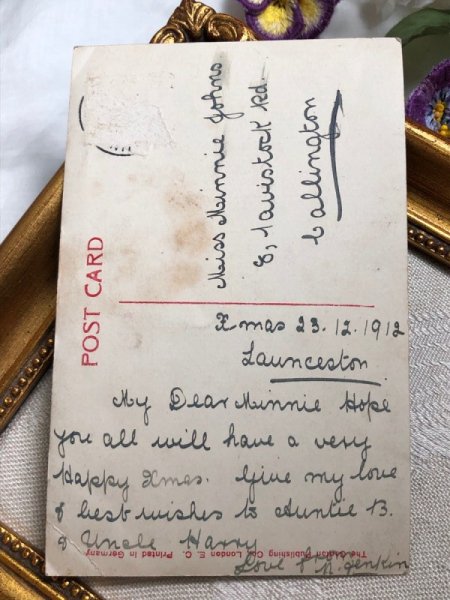 POST CARD
Miss Minnie Johns
8, Tavistock Rd.
Callington
Xmas 23.12.1912
Launceston
My Dear Minnie Hope
you all will have a very
Happy Xmas. Give my love
& best wishes to Auntie B.
& Uncle Harry
Love Jenkin
Publishing Co., London E. C. Printed in Germany